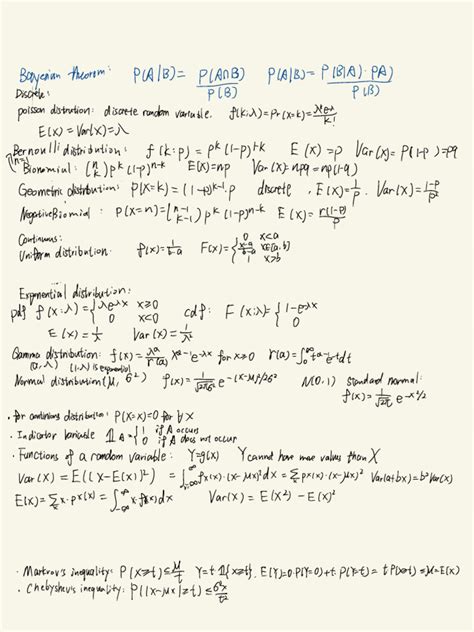 Bayyenian theorom: P(A|B) = P(A∩B)/P(B) P(A|B) = P(B|A)·P(A)/P(B)
Discrete:
poisson distrution: discrete random variable. f(k;λ) = Pr(X=k) =
E(X) = Var(X) = λ
Bernoulli distribution: f(k:p) = p^k (1-p)^1-k E(X) = p Var(X) = P(1-p) = pq
(n=1)
Bionomial: (n k) p^k (1-p)^n-k E(X) = np Var(X) = npq = np(1-q)
Geometric distribution: P(X=k) = (1-p)^k-1 · p discrete, E(X) = 1/p. Var(X) = 1-p/p²
Negative Biomial: P(X=n) = (n-1 k-1) p^k (1-p)^n-k E(X) = r(1-p)/p
Continuous:
Uniform distribution: f(x) = 1/b-a F(x) = { 0 x<a x-a/b-a x∈(a,b) 1 x>b
Exponential distribution:
pdf f(x:λ) = { λe^-λx x≥0 0 x<0 cdf: F(x:λ) = { 1-e^-λx 0
E(X) = 1/λ Var(X) = 1/λ²
Gamma distribution: f(x) = λ^a/Γ(a) x^a-1 e^-λx for x≥0 Γ(a) = ∫₀^∞ t^a-1 e^-t dt
(a,λ) (1,λ) is exponential
Normal distribution (μ, σ²) f(x) = 1/√2πσ² e^-(x-μ)²/2σ² N(0,1) standard normal:
f(x) = 1/√2π e^-x²/2
· For continuous distribution: P(X=x)=0 for ∀x
· Indicator Variable 𝟙_A = { 1 if A occurs 0 if A does not occur
· Functions of a random variable: Y=g(X) Y cannot have more values than X
Var(X) = E((X-E(X))²) = ∫_-∞^∞ f_X(x)·(x-μx)² dx = Σ p_X(x)·(x-μx)² Var(a+bx) = b² Var(x)
E(X) = Σ x·p_X(x) = ∫_-∞^∞ x·f_X(x)dx Var(X) = E(X²) - E(X)²
· Markrov's inequality: P(X≥t) ≤ μ/t Y=t·𝟙{X≥t}. E(Y)=0·P(Y=0)+t·P(Y=t) = tP(X≥t) ≤ μ = E(X)
· Chebyshev's inequality: P(|X-μx|≥t) ≤ σ²x/t²